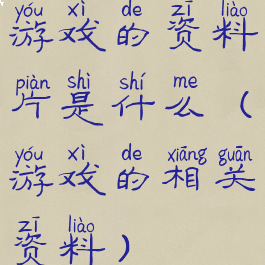 yóu xì de zī liào
游戏的资料
piàn shì shí me
片是什么（
yóu xì de xiāng guān
游戏的相关
zī liào
资料）